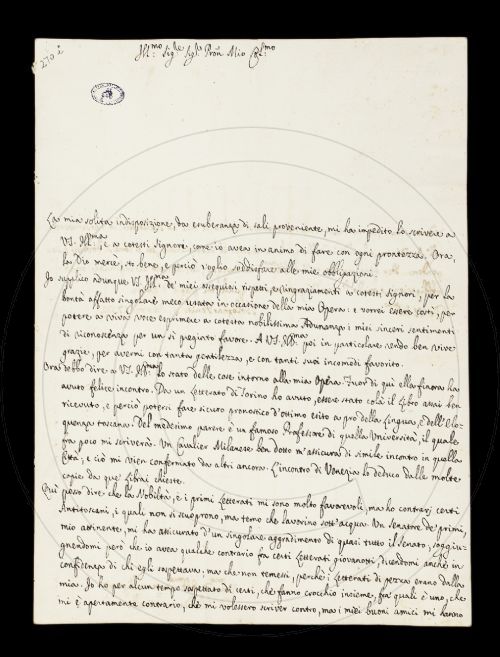 270
Ill.mo Sig.re Sig.r Pron Mio Col.mo
La mia solita indisposizione, da exuberanza di sali proveniente, mi ha impedito lo scrivere a
VS. Ill.ma, e a cotesti Signori, come io avea in animo di fare con ogni prontezza. Ora,
la Dio mercè, sto bene, e perciò voglio soddisfare alle mie obbligazioni.
Io supplico adunque VS. Ill.ma de' miei ossequiosi rispetti, e ringraziamenti a cotesti Signori, per la
bontà affatto singolare meco usata in occasione della mia Opera: e vorrei essere costì, per
potere a viva voce esprimere a cotesta nobilissima Adunanza i miei sinceri sentimenti
di riconoscenza per un sì pregiato favore. A VS. Ill.ma poi in particolare rendo ben vive
grazie, per avermi con tanta gentilezza, e con tanti suoi incomodi favorito.
Ora debbo dire a VS. Ill.ma lo stato delle cose intorno alla mia Opera. Fuor di qui ella finora ha
avuto felice incontro. Da un Letterato di Torino ho avuto, essere stato colà il Libro assai ben
ricevuto, e perciò potersi fare sicuro pronostico d'ottimo esito a pro della Lingua, e dell'Elo-
quenza toscana. Del medesimo parere è un famoso Professore di quella Università, il quale
fra poco mi scriverà. Un Cavalier Milanese ben dotto m'assicura di simile incontro in quella
Città; e ciò mi vien confermato da altri ancora. L'incontro di Venezia lo deduco dalle molte
copie da que' Librai chieste.
Qui posso dire che la Nobiltà, e i primi Letterati mi sono molto favorevoli; ma ho contrarj certi
Antitoscani, i quali non si scuoprono, ma temo che lavorino sott'acqua. Un Senatore de' primi,
mio attinente, mi ha assicurato d'un singolare aggradimento di quasi tutto il Senato, soggiu-
gnendomi però che io avea qualche contrario fra certi Letterati giovanotti, dicendomi anche in
confidenza di chi egli sospettava, ma che non temessi, perchè i Letterati di pezza erano dalla
mia. Io ho per alcun tempo sospettato di certi, che fanno crocchio insieme, fra' quali è uno, che
mi è apertamente contrario, che mi volessero scriver contro, ma i miei buoni amici mi hanno